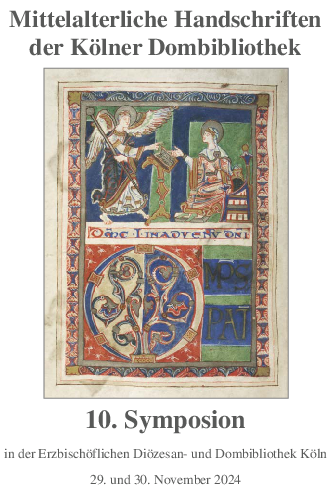 Mittelalterliche Handschriften
der Kölner Dombibliothek
10. Symposion
in der Erzbischöflichen Diözesan- und Dombibliothek Köln
29. und 30. November 2024